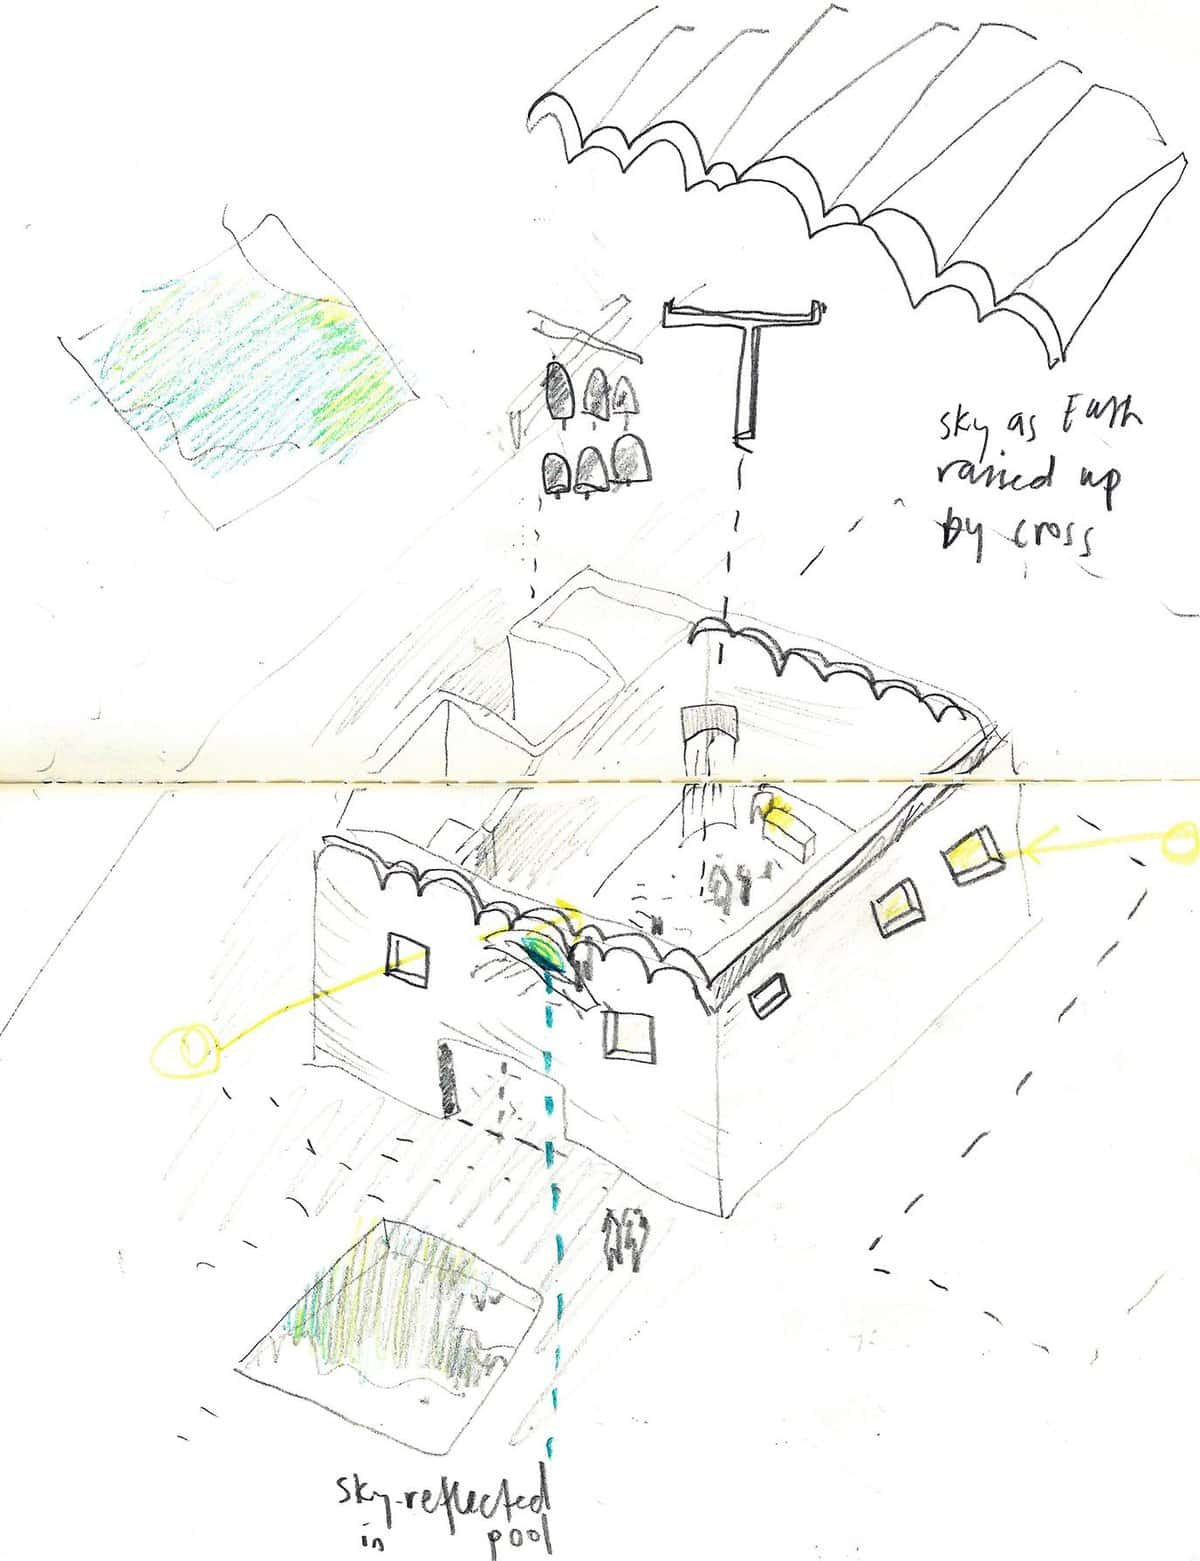 sky as Earth
raised up
by cross
sky-reflected
in pool